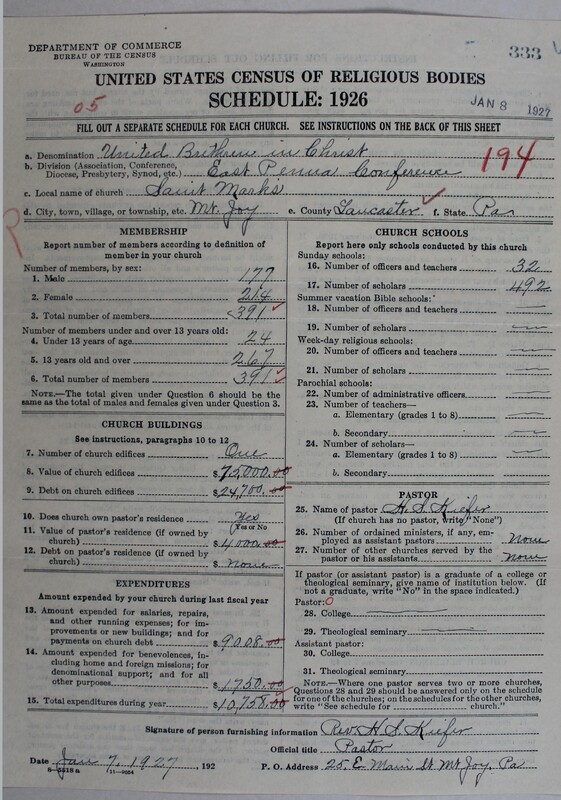 DEPARTMENT OF COMMERCE
BUREAU OF THE CENSUS
WASHINGTON
333
UNITED STATES CENSUS OF RELIGIOUS BODIES
SCHEDULE: 1926
05
JAN 8 1927
FILL OUT A SEPARATE SCHEDULE FOR EACH CHURCH. SEE INSTRUCTIONS ON THE BACK OF THIS SHEET
a. Denomination United Brethren in Christ
b. Division (Association, Conference, Diocese, Presbytery, Synod, etc.) East Penna Conference
194
c. Local name of church Saint Marks
d. City, town, village, or township, etc. Mt. Joy e. County Lancaster f. State Pa
MEMBERSHIP
Report number of members according to definition of member in your church
Number of members, by sex:
1. Male 177
2. Female 214
3. Total number of members 391
Number of members under and over 13 years old:
4. Under 13 years of age 24
5. 13 years old and over 267
6. Total number of members 391
NOTE.—The total given under Question 6 should be the same as the total of males and females given under Question 3.
CHURCH BUILDINGS
See instructions, paragraphs 10 to 12
7. Number of church edifices One
8. Value of church edifices $75,000.00
9. Debt on church edifices $24,700.00
10. Does church own pastor's residence Yes
Yes or No
11. Value of pastor's residence (if owned by church) $4,000.00
12. Debt on pastor's residence (if owned by church) $None
EXPENDITURES
Amount expended by your church during last fiscal year
13. Amount expended for salaries, repairs, and other running expenses; for improvements or new buildings; and for payments on church debt $9008.00
14. Amount expended for benevolences, including home and foreign missions; for denominational support; and for all other purposes $1750.00
15. Total expenditures during year $10,758.00
CHURCH SCHOOLS
Report here only schools conducted by this church
Sunday schools:
16. Number of officers and teachers 32
17. Number of scholars 492
Summer vacation Bible schools:
18. Number of officers and teachers
19. Number of scholars
Week-day religious schools:
20. Number of officers and teachers
21. Number of scholars
Parochial schools:
22. Number of administrative officers
23. Number of teachers—
a. Elementary (grades 1 to 8)
b. Secondary
24. Number of scholars—
a. Elementary (grades 1 to 8)
b. Secondary
PASTOR
25. Name of pastor H. S. Kiefer
(If church has no pastor, write "None")
26. Number of ordained ministers, if any, employed as assistant pastors None
27. Number of other churches served by the pastor or his assistants None
If pastor (or assistant pastor) is a graduate of a college or theological seminary, give name of institution below. (If not a graduate, write "No" in the space indicated.)
Pastor: 0
28. College
29. Theological seminary
Assistant pastor:
30. College
31. Theological seminary
NOTE.—Where one pastor serves two or more churches, Questions 28 and 29 should be answered only on the schedule for one of the churches; on the schedules for the other churches, write "See schedule for church."
Signature of person furnishing information Rev. H. S. Kiefer
Official title Pastor
Date Jan 7, 1927, 192
P. O. Address 25. E. Main St Mt Joy, Pa
8—5518a 11—9084